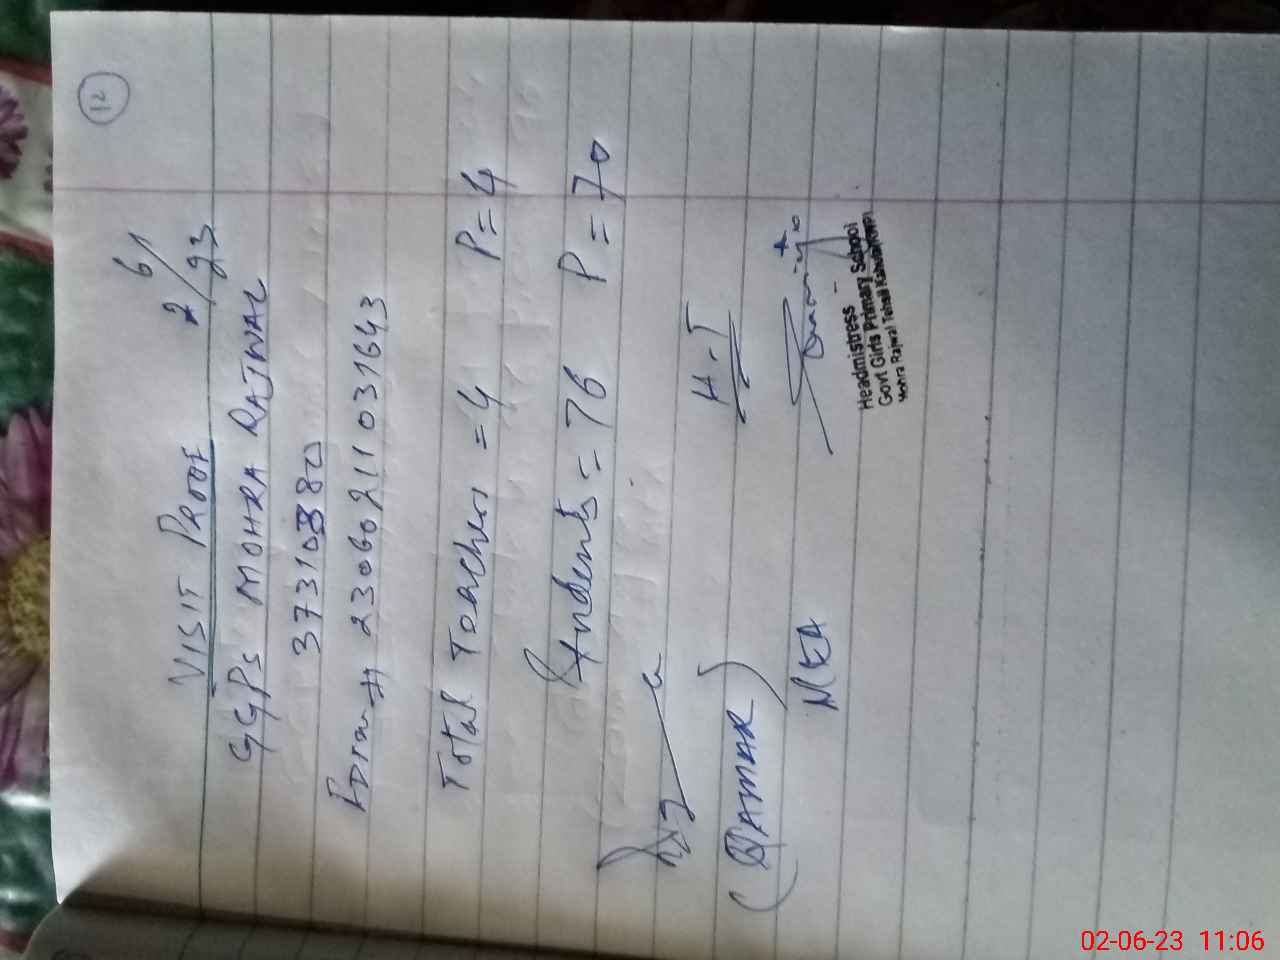 12
VISIT PROOF 2/6/23
GGPS MOHRA RAJWAL
37310380
23060211031643
Total Teachers = 4 P = 4
Students = 76 P = 70
H-T
(QAMAR)
MEA
Headmistress
Govt Girls Primary School
Mohra Rajwal Tehsil
02-06-23 11:06